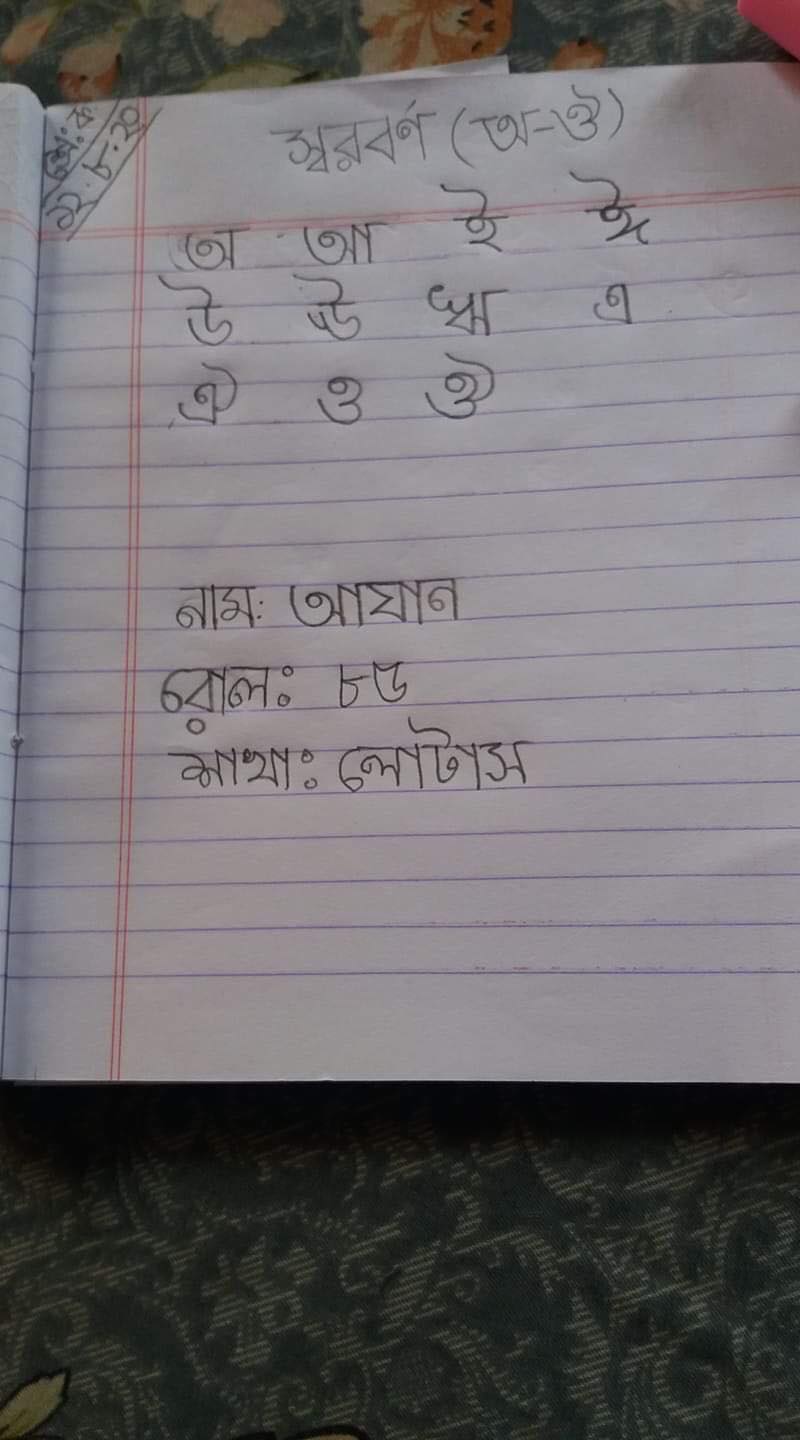 স্বরবর্ণ (অ-ঔ)
অ আ ই ঈ
উ ঊ ঋ এ
ঐ ও ঔ
নাম: আযান
রোল: ৮৬
শাখা: লোটাস